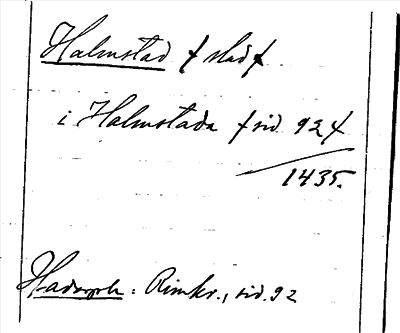 Halmstad f stad f
i Halmstada f sid. 92 f
1435.
Hadorph: Rimkr., sid. 92